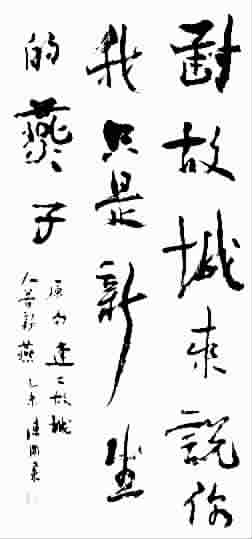 對故城來說你
我只是新生
的燕子
故城
人若新燕 乙未